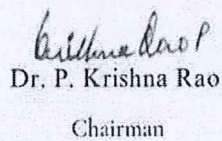 Krishna Rao P
Dr. P. Krishna Rao
Chairman